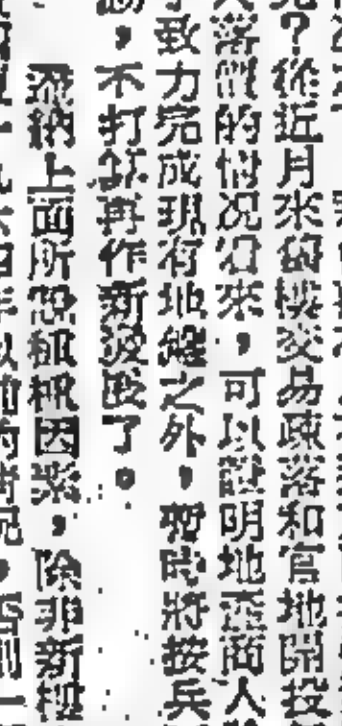 ？從近月來的樓交易疎落和官地開投
落價的情况看來，可以證明地產商人
致力完成現有地盤之外，暫時將按兵
，不打算再作新發展了。
歸納上面所說種種因素，除非新樓